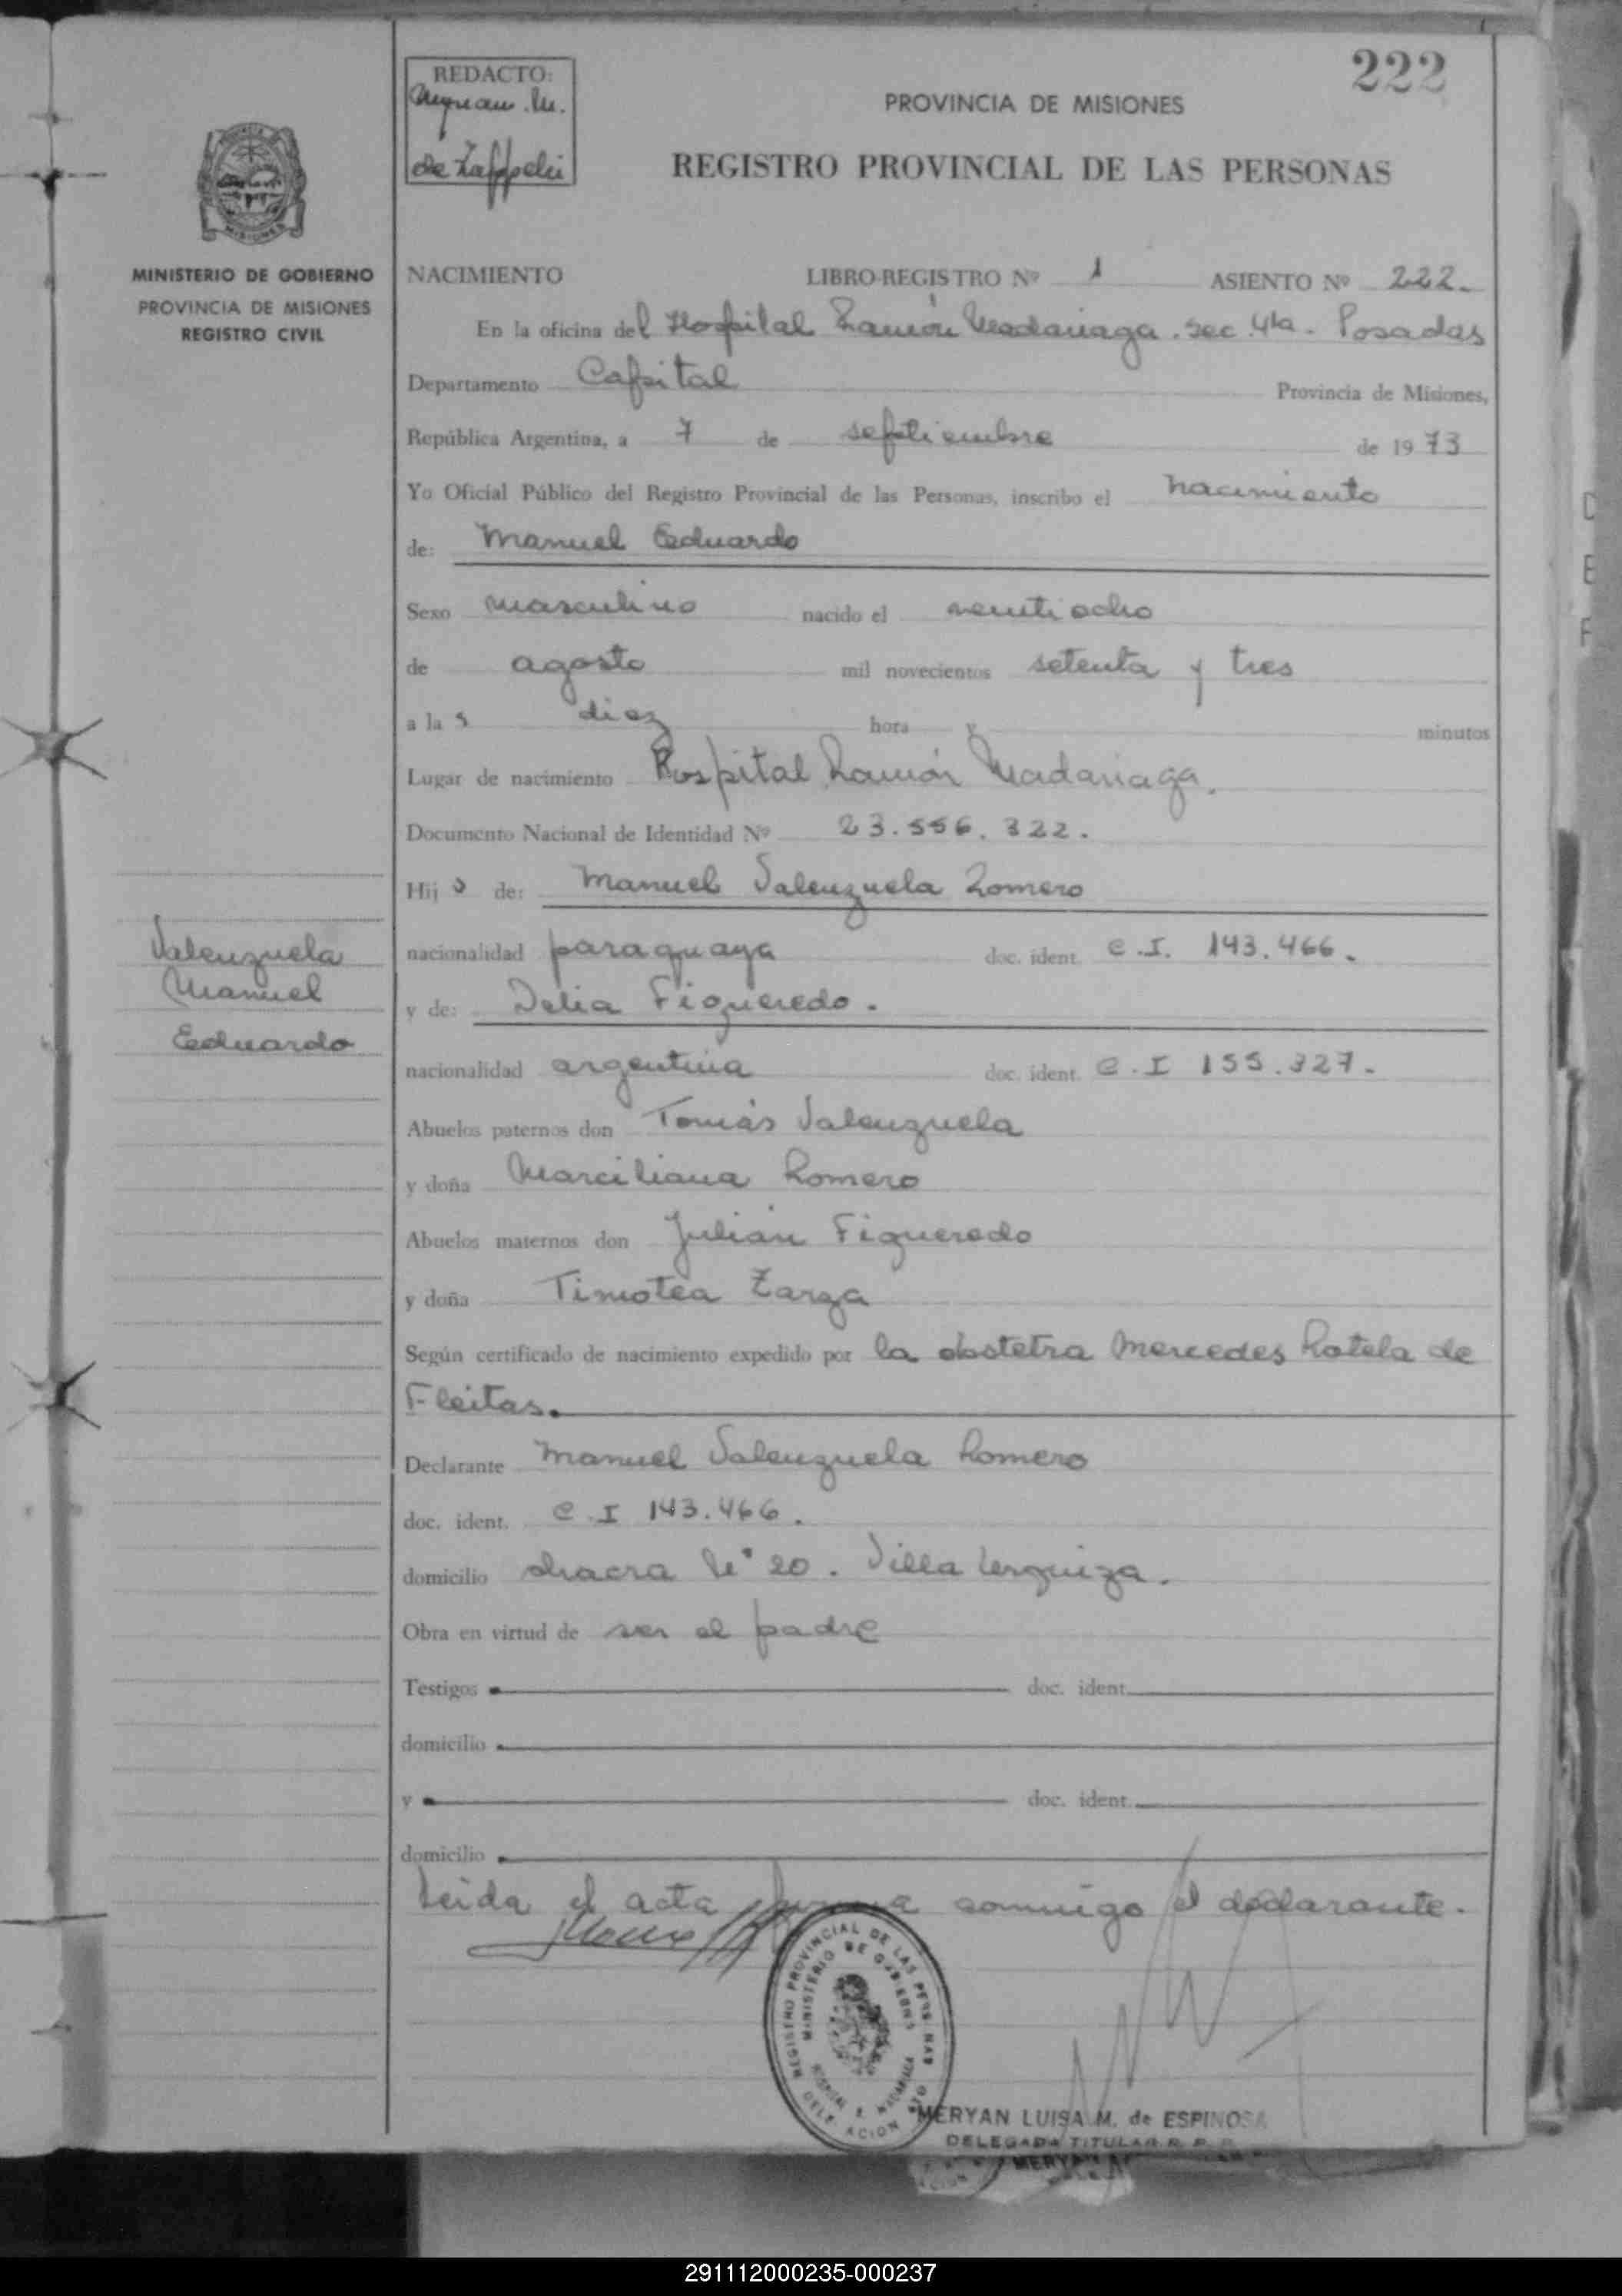 222
REDACTO:
de Zappelii
PROVINCIA DE MISIONES
REGISTRO PROVINCIAL DE LAS PERSONAS
MISIONES
MINISTERIO DE GOBIERNO
PROVINCIA DE MISIONES
REGISTRO CIVIL
NACIMIENTO LIBRO-REGISTRO Nº 1 ASIENTO Nº 222.
En la oficina del Hospital Ramón Madariaga. Sec. 4ta. Posadas
Departamento Capital Provincia de Misiones,
República Argentina, a 7 de septiembre de 1973
Yo Oficial Público del Registro Provincial de las Personas, inscribo el nacimiento
de: Manuel Eduardo
Sexo masculino nacido el veintiocho
de agosto mil novecientos setenta y tres
a las diez hora y minutos
Lugar de nacimiento Hospital Ramón Madariaga.
Documento Nacional de Identidad Nº 23.556.322.
Hijo de: Manuel Valenzuela Romero
nacionalidad paraguaya doc. ident. C.I. 143.466.
y de: Delia Figueredo.
nacionalidad argentina doc. ident. C.I 155.327.
Valenzuela
Manuel
Eduardo
Abuelos paternos don Tomás Valenzuela
y doña Marciliana Romero
Abuelos maternos don Julián Figueredo
y doña Timotea Zarza
Según certificado de nacimiento expedido por la obstetra Mercedes Rotela de
Fleitas.
Declarante Manuel Valenzuela Romero
doc. ident. C.I 143.466.
domicilio chacra Nº 20. Villa Urquiza.
Obra en virtud de ser el padre
Testigos doc. ident.
domicilio
y doc. ident.
domicilio
Leida el acta firma conmigo el declarante.
REGISTRO PROVINCIAL DE LAS PERSONAS
MINISTERIO DE GOBIERNO
MERYAN LUISA M. de ESPINOSA
DELEGADA TITULAR R. P. P.
291112000235-000237